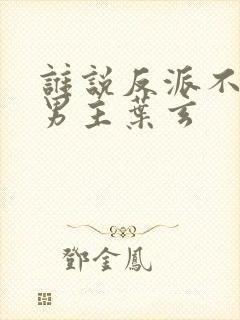 誰說反派不
男主葉玄
鄧金鳳